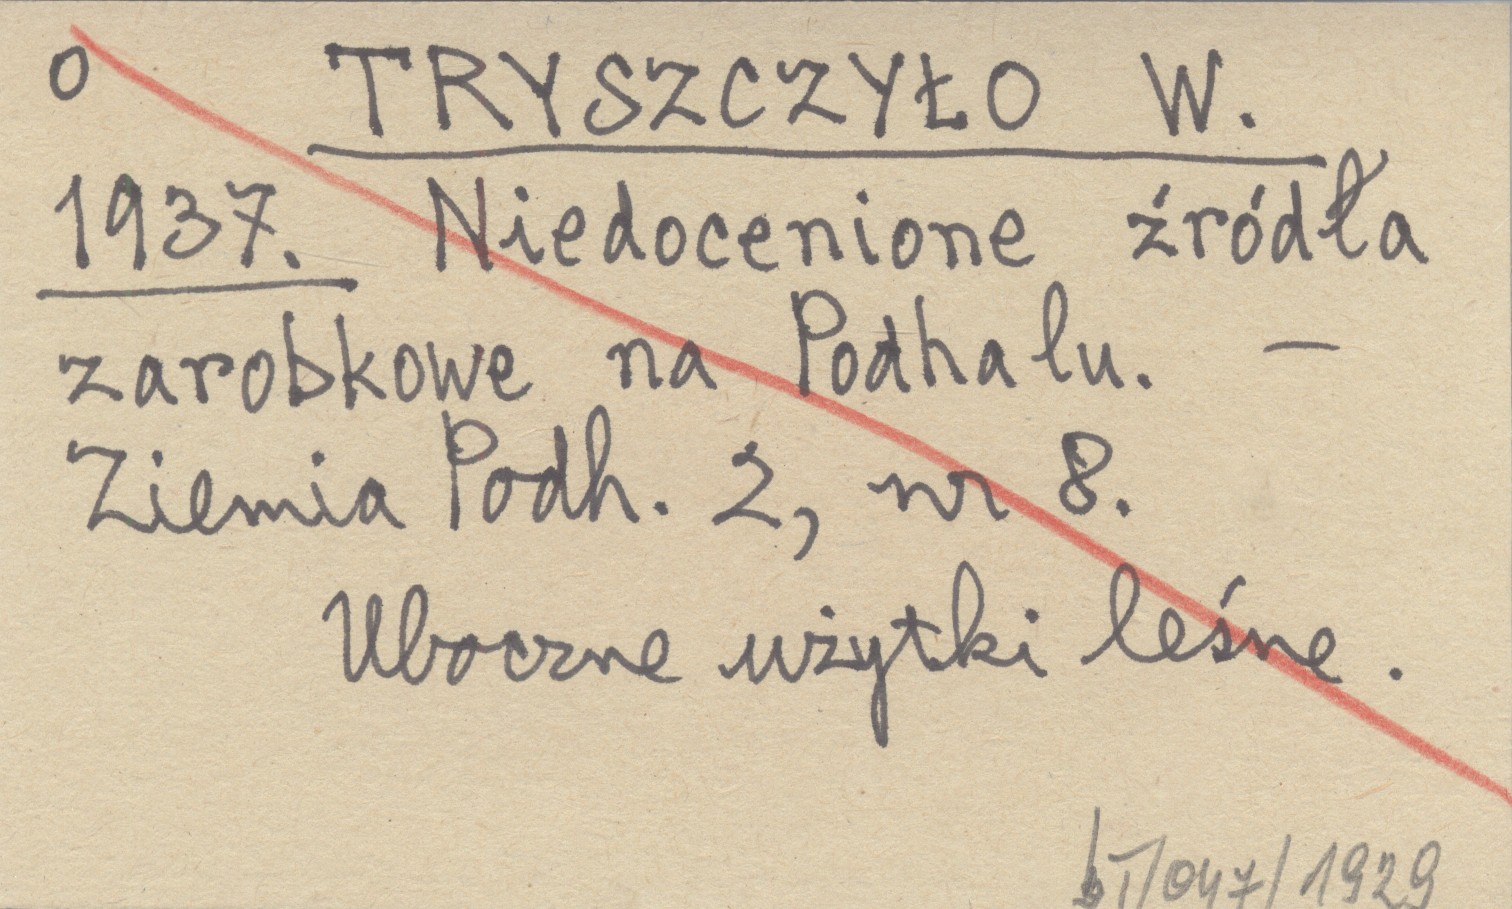 o TRYSZCZYŁO W.
1937. Niedocenione źródła
zarobkowe na Podhalu. —
Ziemia Podh. 2, nr 8.
Uboczne użytki leśne.
bT/047/1929